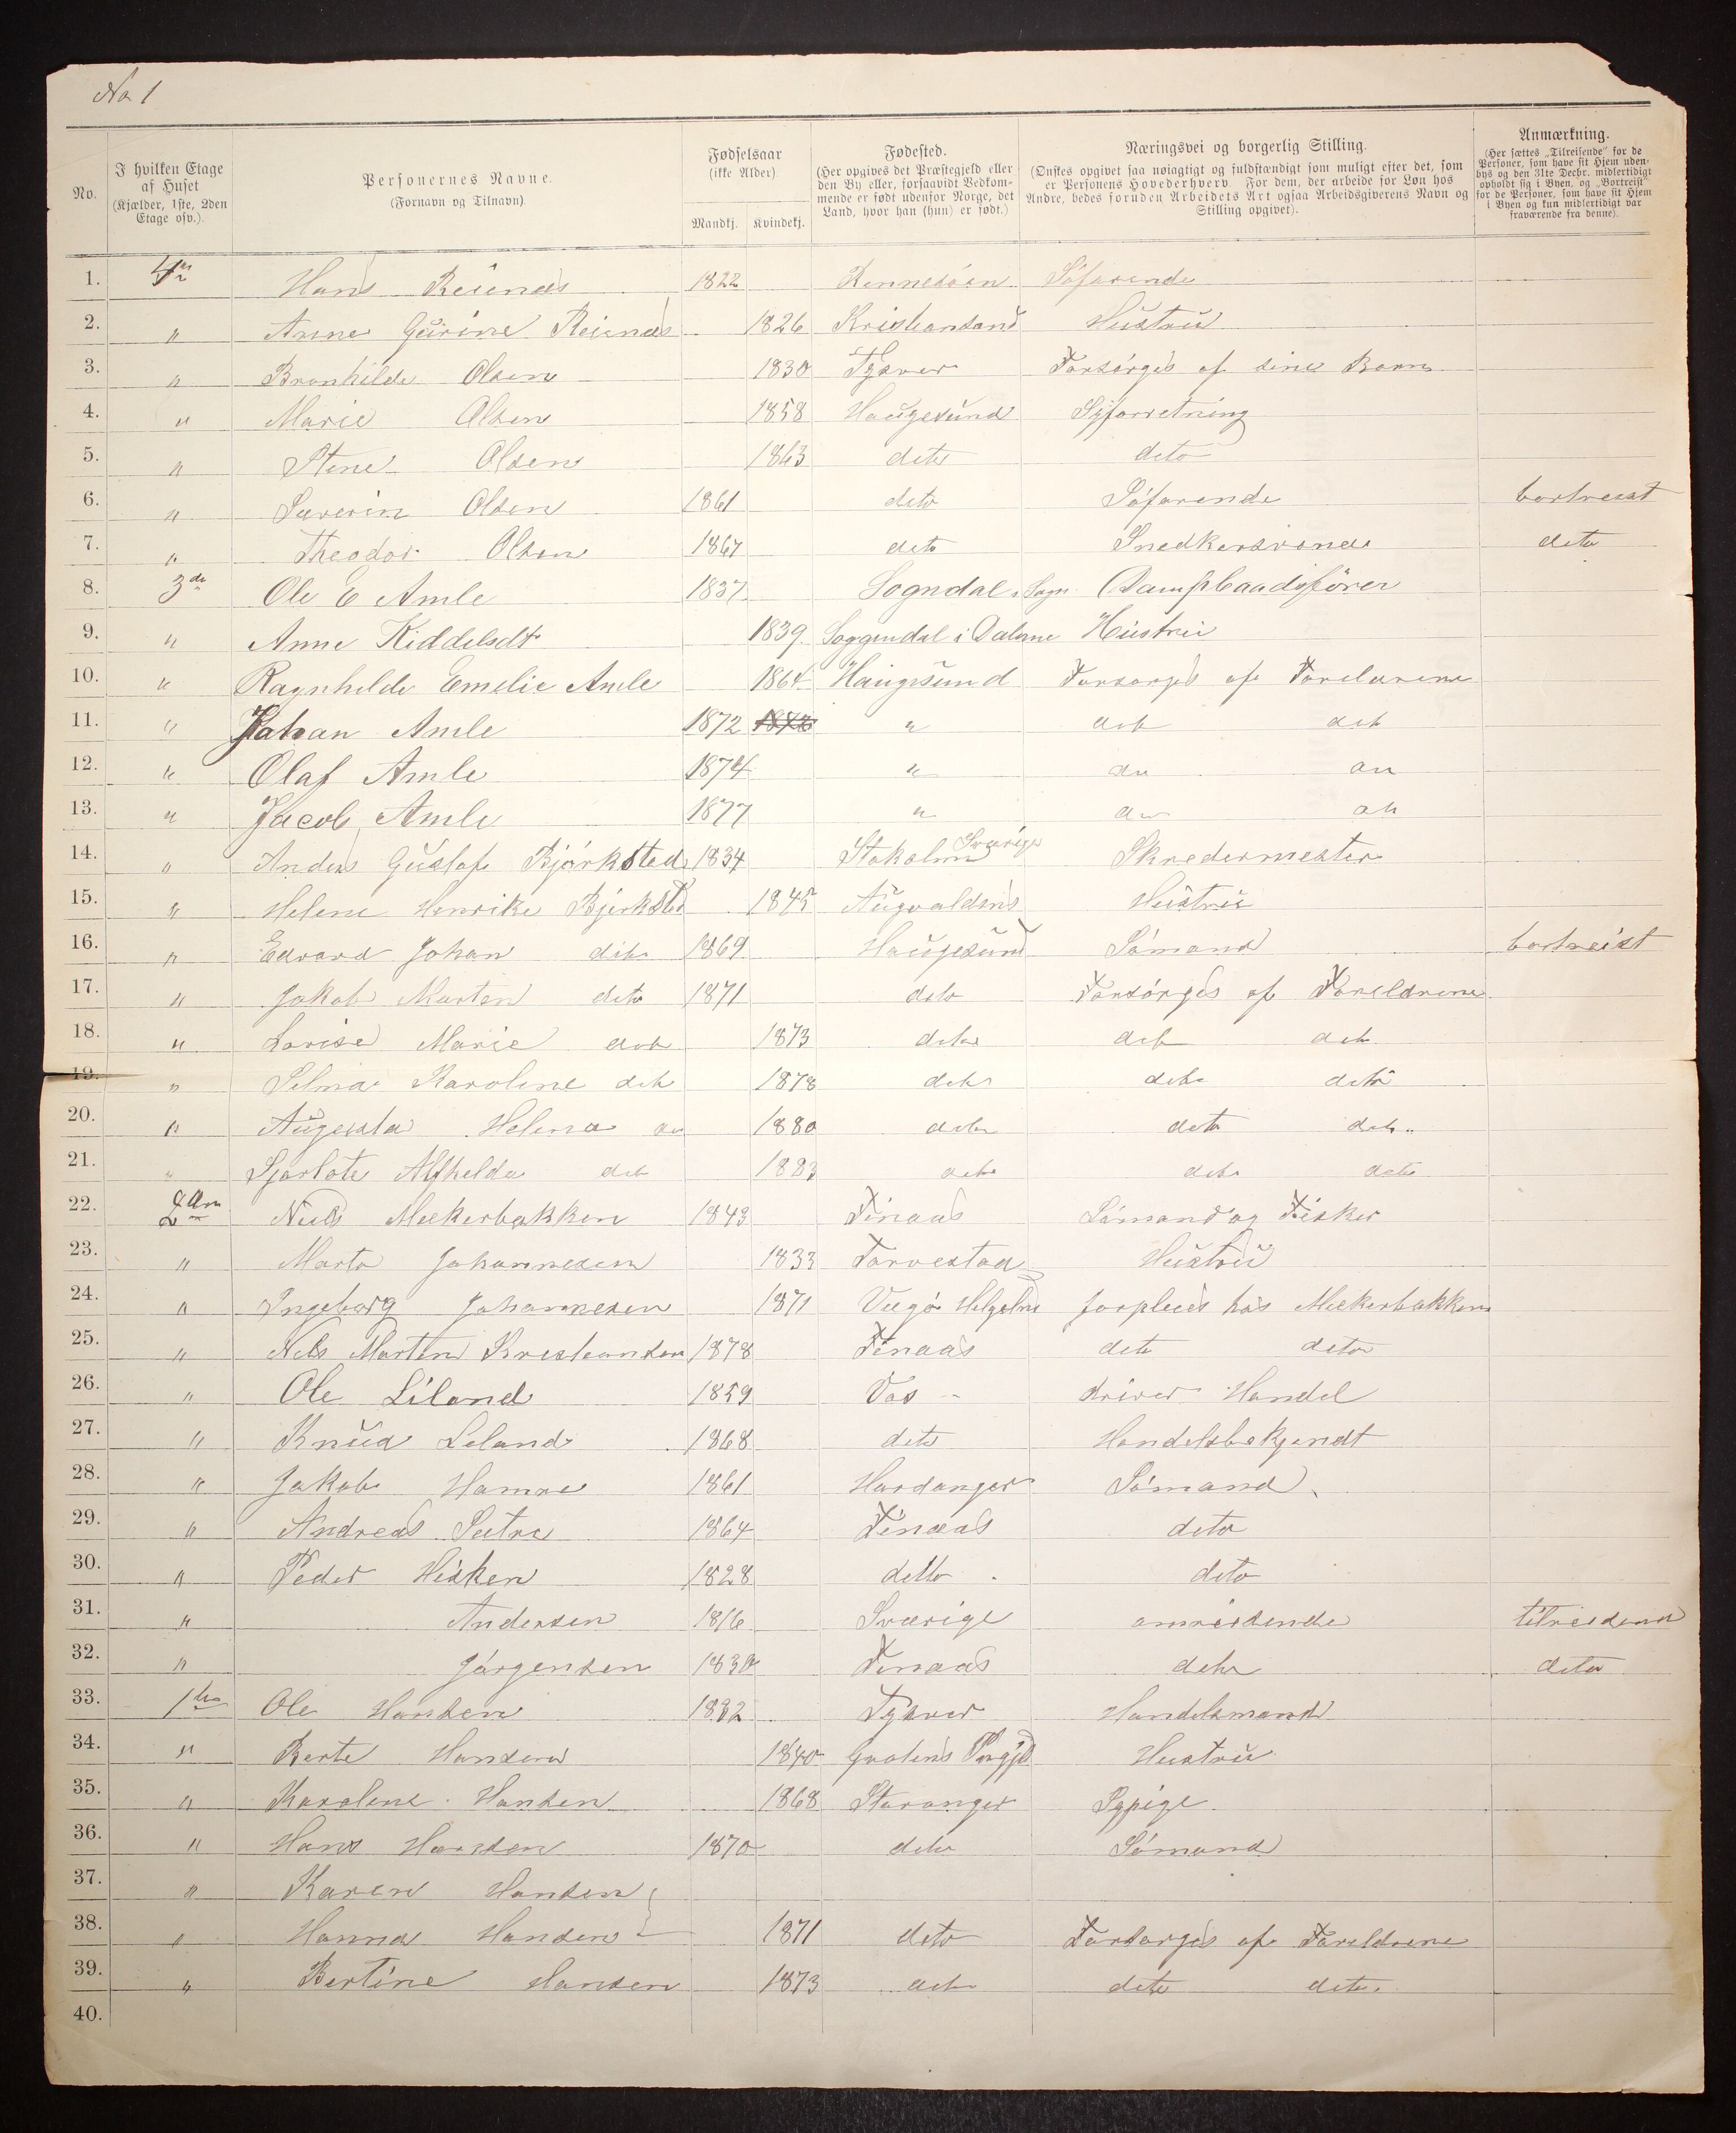 No 1
No.
I hvilken Etage
af Huset
(Kjælder, 1ste, 2den
Etage osv.).
Personernes Navne.
(Fornavn og Tilnavn).
Fødselsaar
(ikke Alder).
Mandkj.
Kvindekj.
Fødested.
(Her opgives det Præstegjeld eller
den By eller, forsaavidt Vedkom-
mende er født udenfor Norge, det
Land, hvor han (hun) er født.)
Næringsvei og borgerlig Stilling.
(Ønskes opgivet saa nøiagtigt og fuldstændigt som muligt efter det, som
er Personens Hovederhverv. For dem, der arbeide for Løn hos
Andre, bedes foruden Arbeidets Art ogsaa Arbeidsgiverens Navn og
Stilling opgivet).
Anmærkning.
(Her sættes „Tilreisende“ for de
Personer, som have sit Hjem uden-
bys og den 31te Decbr. midlertidigt
opholdt sig i Byen, og „Bortreist“
for de Personer, som have sit Hjem
i Byen og kun midlertidigt var
fraværende fra denne).
1. 4 Hans Reienæs 1822 Rennesöen Söfarende
2. " Anne Gurine Reienæs 1826 Kristiansand Hustru
3. " Bronhilde Olsen 1830 Tysver Forsörges af sine Børn
4. " Marie Olsen 1858 Haugesund Syforretning
5. " Stene Olsen 1863 deto deto
6. " Severin Olsen 1861 deto Söfarende bortreist
7. " Theodor Olsen 1867 deto Snedkersvend deto
8. 3de Ole E Amle 1837 Sogndal i Sogn Dampbaadsfører
9. " Anne Kiddelsdt 1839 Soggendal i Dalerne Hustru
10. " Ragnhilde Emelie Amle 1864 Haugesund Forsørges af Foreldrene
11. " Johan Amle 1872 " det det
12. " Olaf Amle 1874 " do do
13. " Jacob Amle 1877 " do do
14. " Anders Gustaf Bjørksted 1834 Stokolm Sverige Skredermester
15. " Helene Henrike Bjerksted 1845 Augvaldsnes Hustru
16. " Edvard Johan deto 1869 Haugesund Sömand bortreist
17. " Jakob Marten deto 1871 deto Forsörges af Foreldrene
18. " Lovise Marie deto 1873 deto det deto
19. " Selma Karoline deto 1878 deto deto deto
20. " Augusta Helena do 1880 deto deto deto
21. " Sjarlote Alfhelda deto 1883 deto deto deto
22. 2den Niels Mækerbakken 1843 Finaas Sömand og Fisker
23. " Marta Johannesen 1833 Torvestad Hustru
24. " Ingeborg Johannesen 1871 forpleies hos Mækerbakken
25. " Nels Martin Kristiansen 1878 Finaas deto deto
26. " Ole Liland 1859 Vos driver Handel
27. " Knud Leland 1868 deto Handelsbetjendt
28. " Jakob Hamre 1861 Hardanger Sömand
29. " Andreas Sætre 1864 Finaas deto
30. " Peder Hisken 1828 detto deto
31. " Andersen 1816 Sverige omreisende tilreisend
32. " Jörgensen 1830 Finaas deto deto
33. 1ste Ole Hansen 1832 Tysver Handelsmand
34. " Berte Hansen 1840 Hustru
35. " Karoline Hansen 1868 Stavanger Sypige
36. " Hans Hansen 1870 deto Sömand
37. " Karen Hansen
38. " Hanna Hansen 1871 deto Forsorges af Foreldrene
39. " Bertine Hansen 1873 deto deto deto
40.